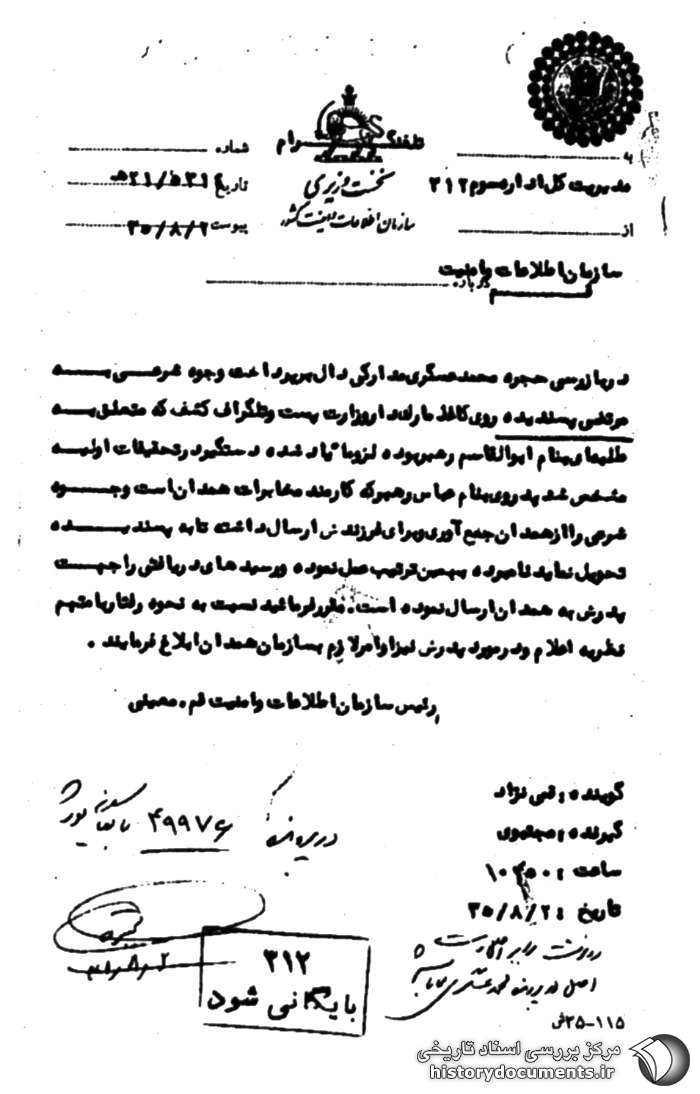 به
مدیریت کل اداره سوم ۳۱۲
از
سازمان اطلاعات و امنیت
قم
درباره
تلفنگرام
نخست وزیری
سازمان اطلاعات و امنیت کشور
شماره
تاریخ ۲۱/۵۳۱ ه‍
پیوست ۳۵/۸/۲
در بازرسی حجره محمد عسگری مدارکی دال بر پرداخت وجوه شرعی به
مرتضی پسندیده روی کاغذ مارک‌دار وزارت پست و تلگراف کشف که متعلق به
طلبه‌ای بنام ابوالقاسم رهبر بوده لزوماً یاد شده دستگیر در تحقیقات اولیه
مشخص شد پدر وی بنام عباس رهبر که کارمند مخابرات همدان است وجوه
شرعی را از همدان جمع آوری و برای فرزندش ارسال داشته تا به پسندیده
تحویل نماید نامبرده بهمین ترتیب عمل نموده و رسیدهای دریافتی را جهت
پدرش به همدان ارسال نموده است. مقرر فرمائید نسبت به نحوه رفتار با متهم
نظریه اعلام و در مورد پدرش نیز اوامر لازم بسازمان همدان ابلاغ فرمایند.
رئیس سازمان اطلاعات و امنیت قم. معینی
گوینده: تقی نژاد
گیرنده: مجتبوی
ساعت: ۱۰۴۵۰
تاریخ: ۳۵/۸/۲
در پرونده ۴۹۹۷۶
اصل در پرونده محمد عسگری
۳۱۲
بایگانی شود
۱۱۵-۲۵ش
مرکز بررسی اسناد تاریخی
historydocuments.ir